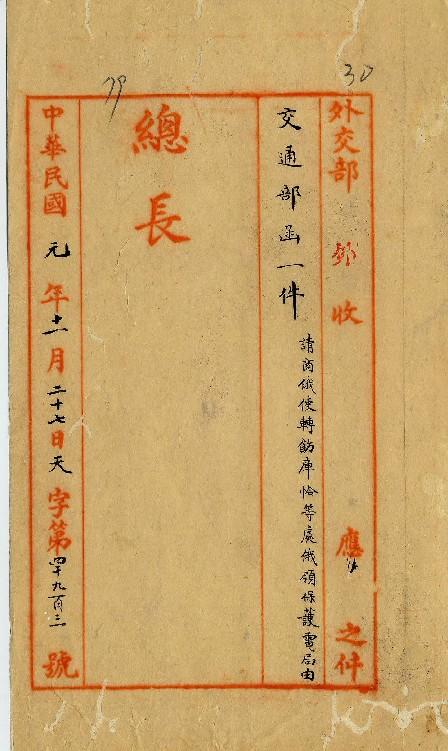 30
79
外交部 收 應 之件
交通部函一件
請商俄使轉飭庫恰等處俄領保護電局由
總長
中華民國元年十一月二十七日天字第四千九百三號